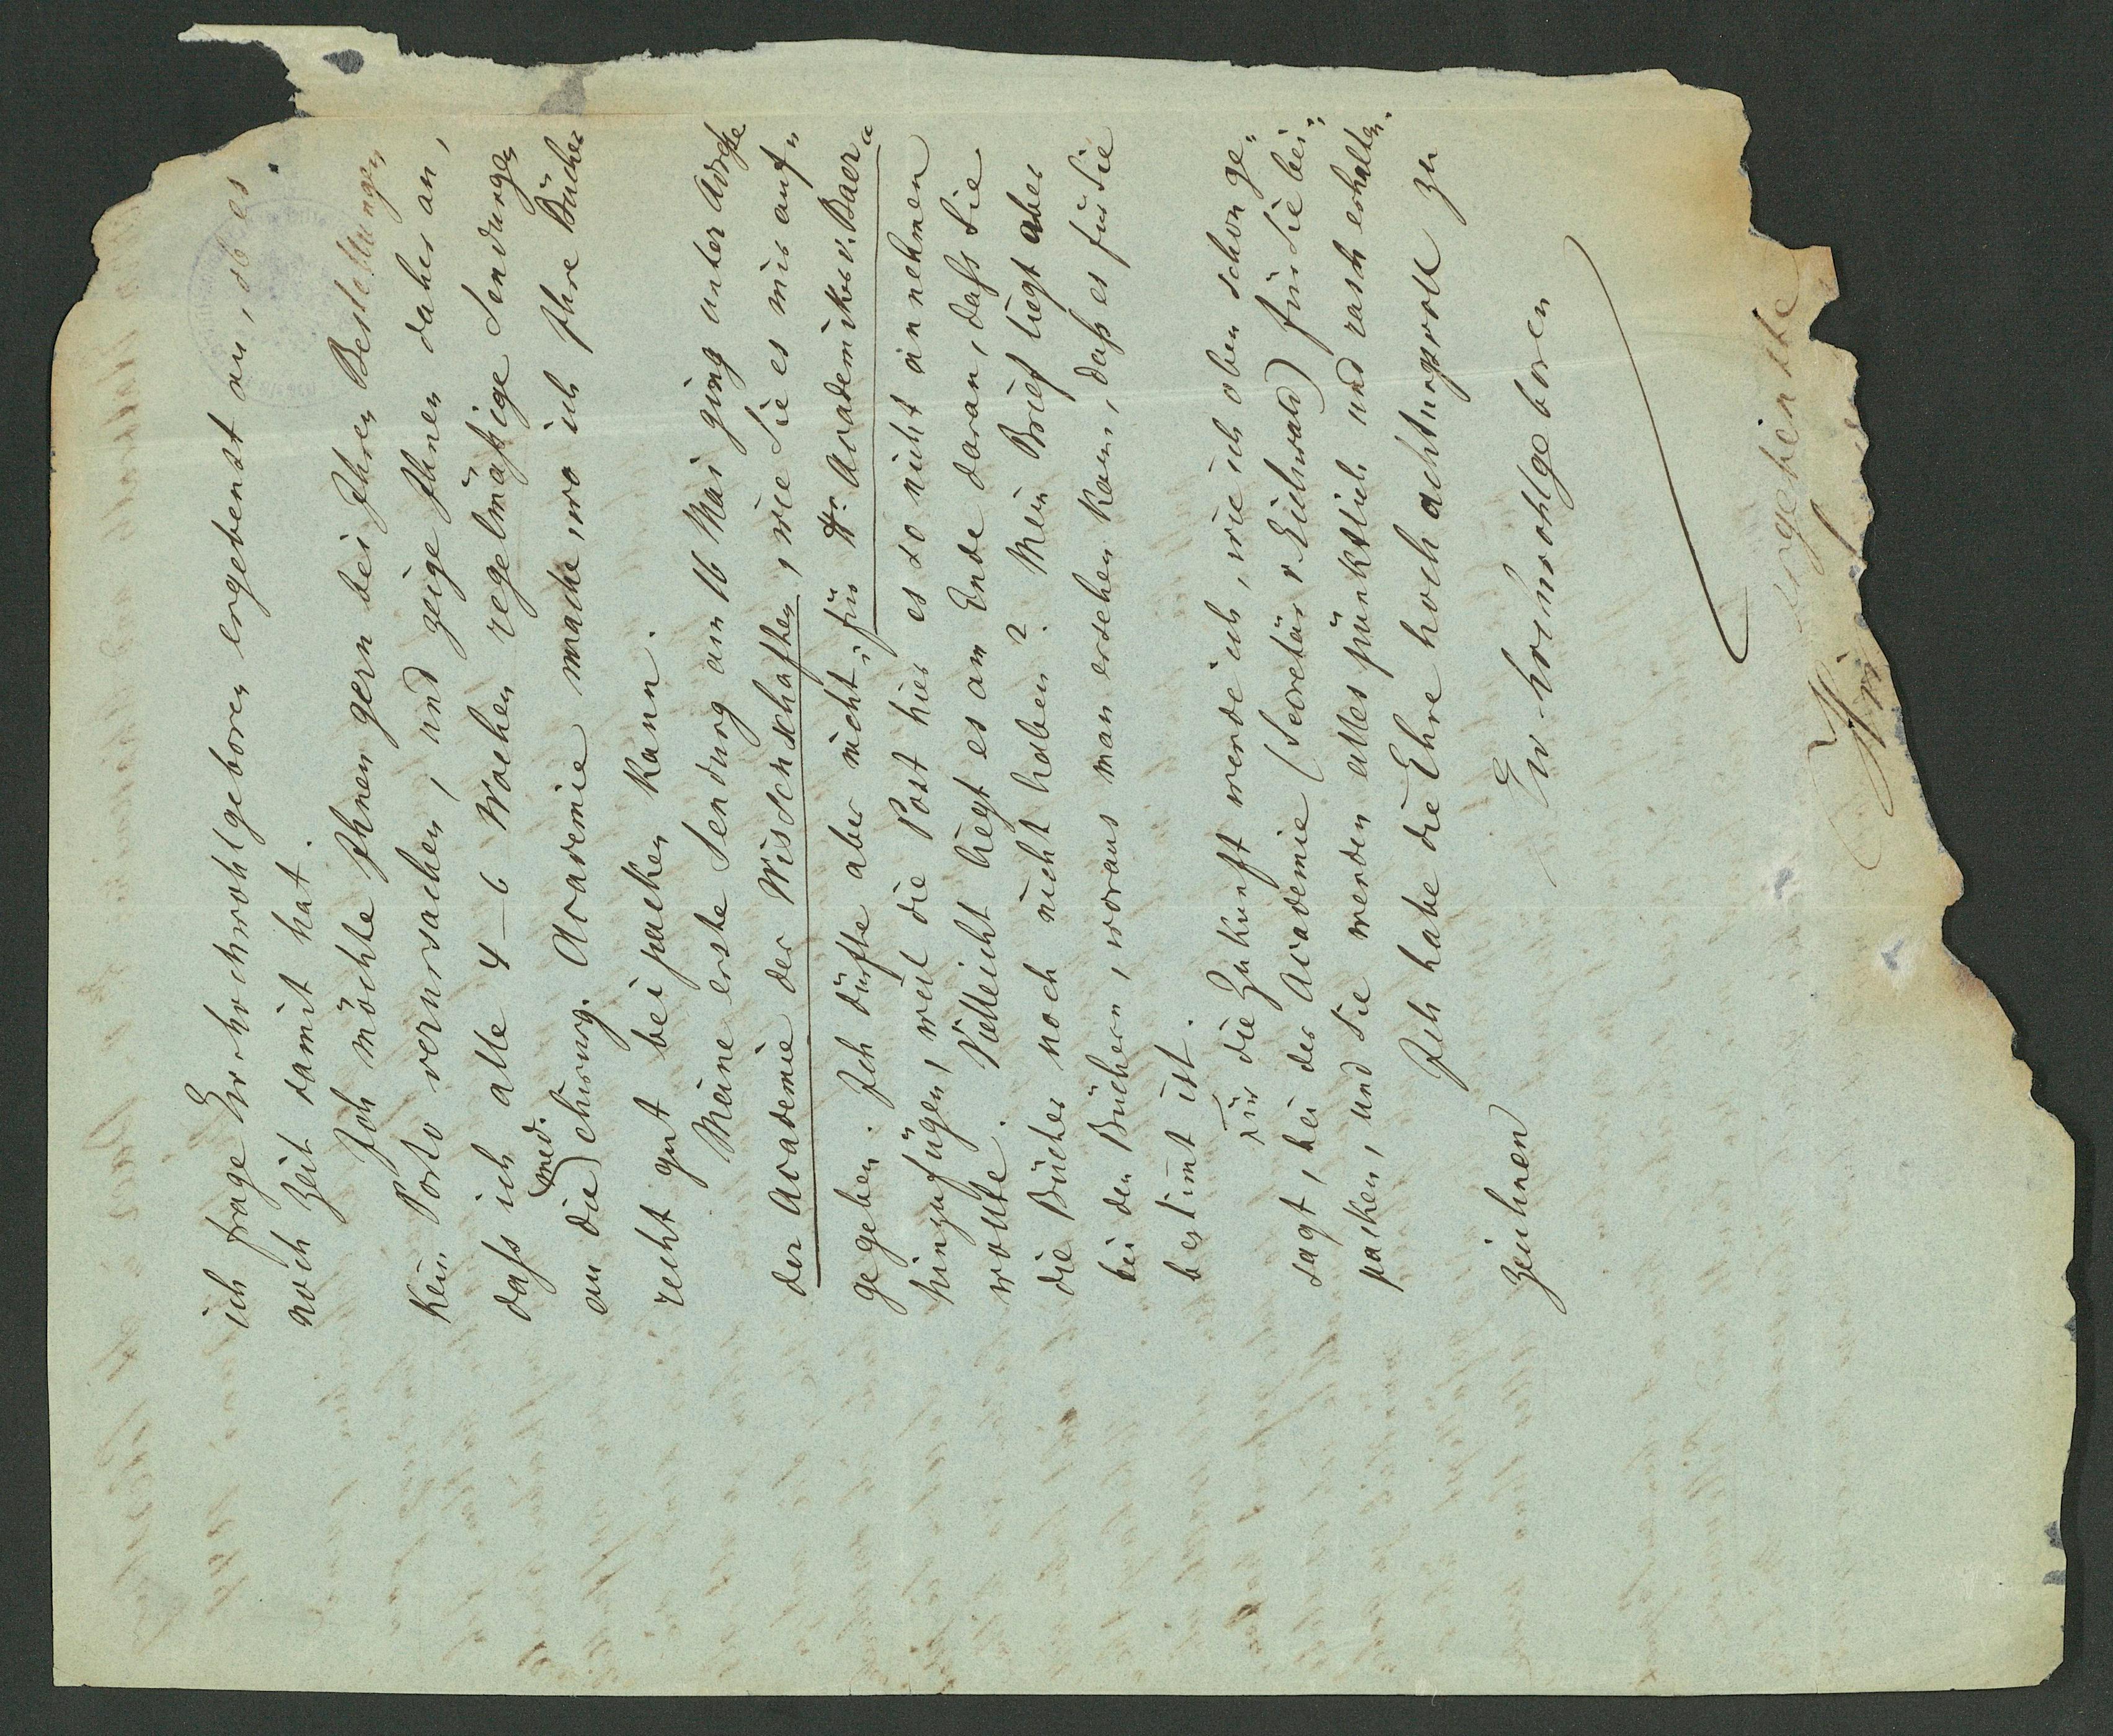 ich frage Ew. hochwohlgeboren ergebenst an, ob es
noch Zeit damit hat.
Ich möchte Ihnen gern bei Ihren Bestellungen
kein Porto verursachen, und zeige Ihnen daher an,
dass ich alle 4–6 Wochen regelmäßige Sendungen
an die (med.) chirurg. Academie mache, wo ich Ihre Bücher
recht gut beipacken kann.
Meine erste Sendung am 16 Mai ging unter Adresse
der Academie der Wissenschaften, wie Sie es mir auf=
gegeben. Ich durfte aber nicht „für Hr. Academiker v. Baer“
hinzufügen, weil die Post hier es so nicht annehmen
wollte. Vielleicht liegt es am Ende daran, dass Sie
die Bücher noch nicht haben? Mein Brief liegt aber
bei den Büchern, woraus man ersehen kann, daß es für Sie
bestimt ist.
Für die Zukunft werde ich, wie ich oben schon ge=
sagt, bei der Academie (Secretär v Eichwald) für Sie bei=
packen, und Sie werden alles pünktlich und rasch erhalten.
Ich habe die Ehre hochachtungsvoll zu
zeichnen
Ew. hochwohlgeboren
ergebenste